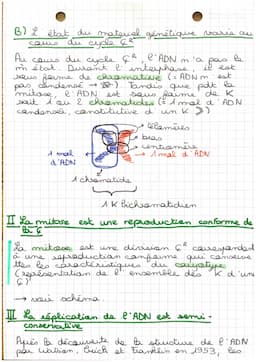 B) L'état du matériel génétique varie au
cours du cycle C^R
Au cours du cycle C^R, l'ADN n'a pas le
m̂ état. Durant l'interphase, il est
sous forme de chromatine (= ADN n' est
pas condensé →). Tandis que pdt la
mitose, l'ADN est sous forme de K
soit 1 ou 2 chromatides (= 1 mol d'ADN
condensé, constitutive d'un K)
télomères
bras
centromère
1 mol d'ADN
→ 1 mol d'ADN
1 chromatide
1 K bichromatidien
II La mitose est une reproduction conforme de
la C
La mitose est une division C^R correspondant
à une reproduction conforme qui conserve
ttes les caractéristiques du caryotype
(représentation de l'ensemble des K d'une
C)
→ voir schéma.
III La réplication de l'ADN est semi-
conservative
Après la découverte de la structure de l'ADN
par Watson, Crick et Franklin en 1953, les